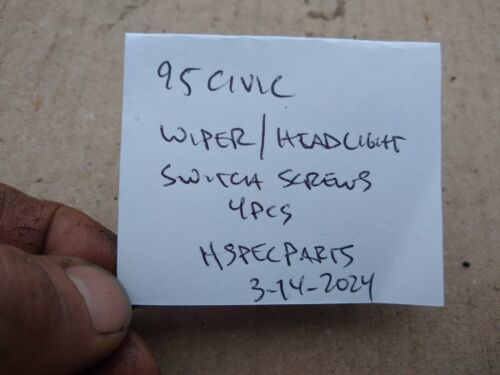 95 CIVIC
WIPER/HEADLIGHT
SWITCH SCREWS
4PCS
HSPECPARTS
3-14-2024